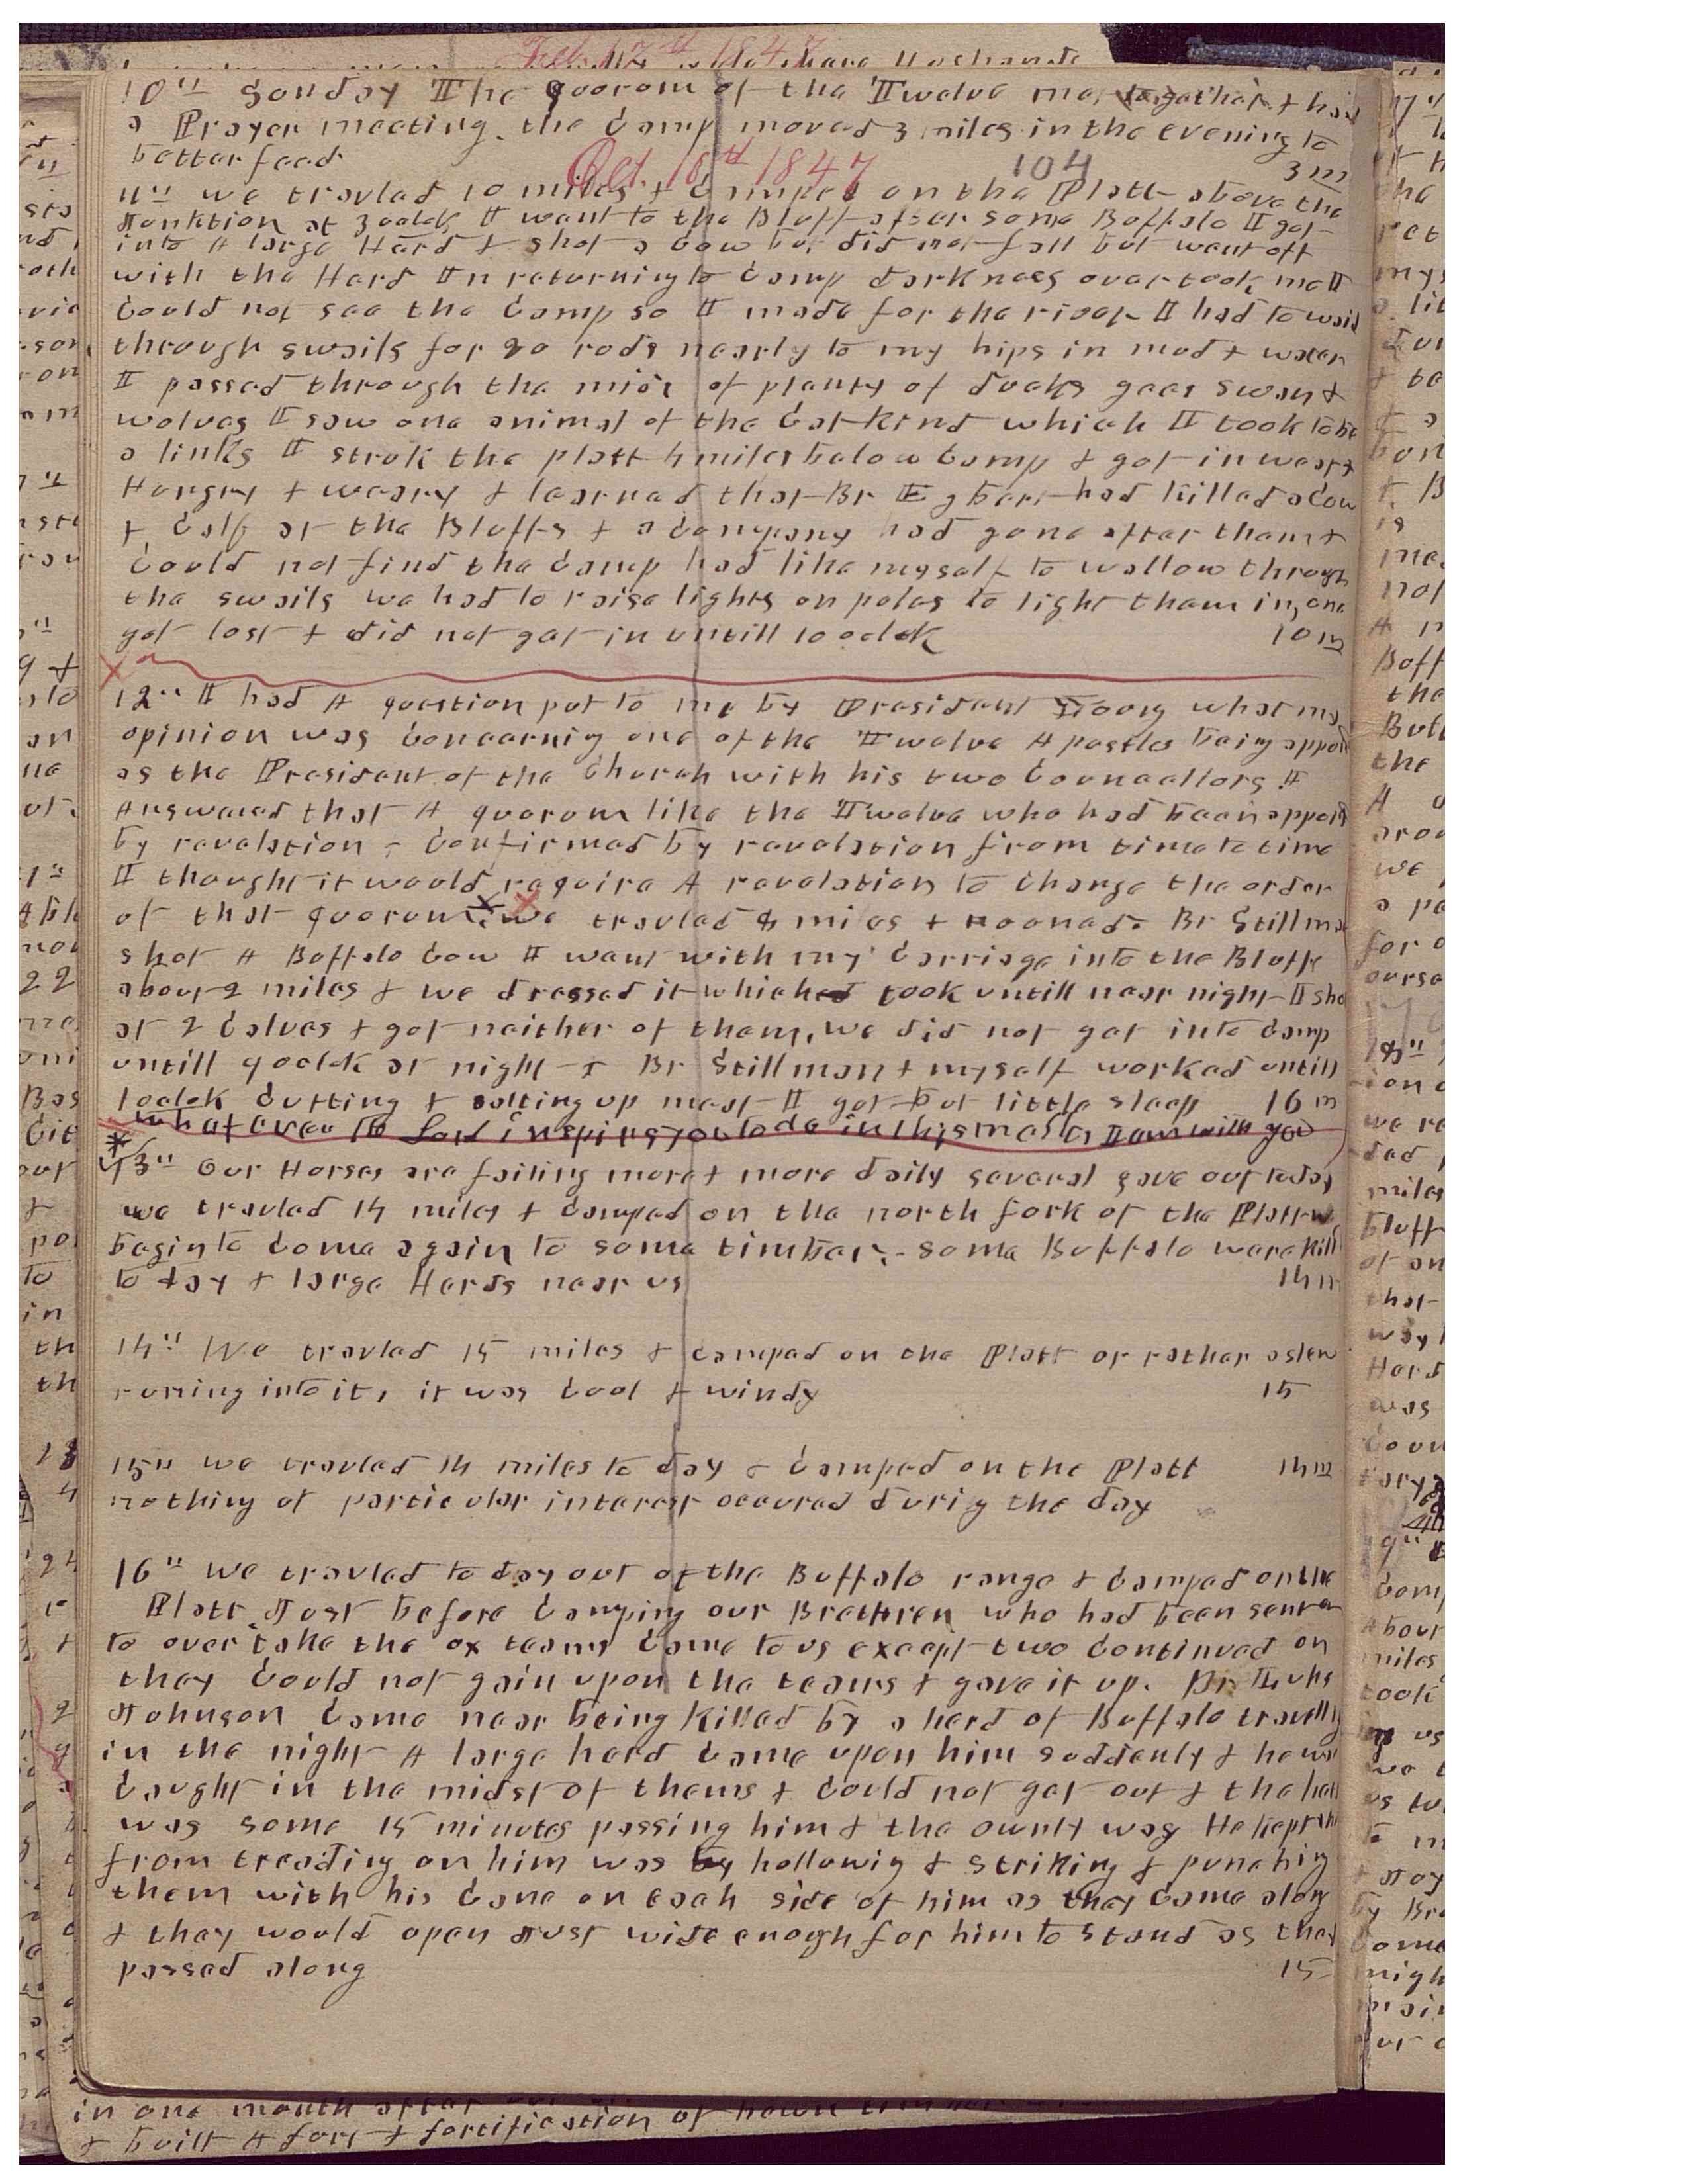 Feb. 17th 1847
10" Sunday The quorum of the Twelve met togather & had
a Prayer meeting. the Camp moved 3 miles in the evening to
better feed 3 m
Oct. 18th 1847 104
11" we travled 10 miles & Camped on the Platt above the
Junktion at 3 oclok, I went to the Bluff after some Buffalo I got
into A large Herd & shot a Cow but did not fall but went off
with the Herd In returning to Camp darkness overtook me I
Could not see the Camp so I made for the river I had to waid
through swails for 80 rods nearly to my hips in mud & water
I passed through the midst of planty of ducks gees swan &
wolves I saw one animal of the Cat Kind which I took to be
a links I struk the platt 4 miles below Camp & got in weat &
Hungry & weary & learned that Br Egbert had killed a Cow
& Calf at the Bluffs & a Company had gone after them &
Could not find the Camp had like myself to wallow through
the swails we had to raise lights on poles to light them in, one
got lost & did not get in untill 10 oclok 10 m
12" I had A question put to me by President Young what my
opinion was Concerning one of the Twelve Apostles being appoi
as the President of the Church with his two Councellors. I
Answered that A quorum like the Twelve who had been appoi
by revelation & Confirmed by revelation from time to time
I thought it would require A revelation to change the order
of that quorum. we travled 8 miles & noonad. Br Stillma
shot A Buffalo Cow I went with my Carriage into the Bluff
about 2 miles & we dressed it which took untill near night I sho
at 2 Calves & got neither of them, we did not get into Camp
untill 9 oclok at night & Br Stillman & myself worked untill
1 oclok Cutting & salting up meat I got but little sleep 16 m
whatever the Lord inspires you to do in this matter I am with you
13" Our Horses are failing more & more daily several gave out today
we travled 14 miles & camped on the north fork of the Platt we
begin to Come again to some timber. Some Buffalo ware kill
to day & large Herds near us 14 m
14" We travled 15 miles & camped on the Platt or rather aslew
runing into it, it was Cool & windy 15
15" we travled 14 miles to day & Camped on the Platt 14 m
nothing of particular interest occured durig the day
16" we travled to day out of the Buffalo range & Camped on the
Platt Just before Camping our Brethren who had been sent on
to over take the ox teams Came to us except two Continued on
they Could not gain upon the teams & gave it up. Br Luke
Johnson Came near being killed by a herd of Buffalo travelly
in the night A large herd Came upon him suddenly & he was
Caught in the midst of them & Could not get out & the her
was some 15 minutes passing him & the ownly way He kept the
from treading on him was by hollowig & striking & punchig
them with his Cane on each side of him as they Came along
& they would open Just wide enough for him to stand as they
passed along 15
in one month after
& built A fort & fortification of hewn timber